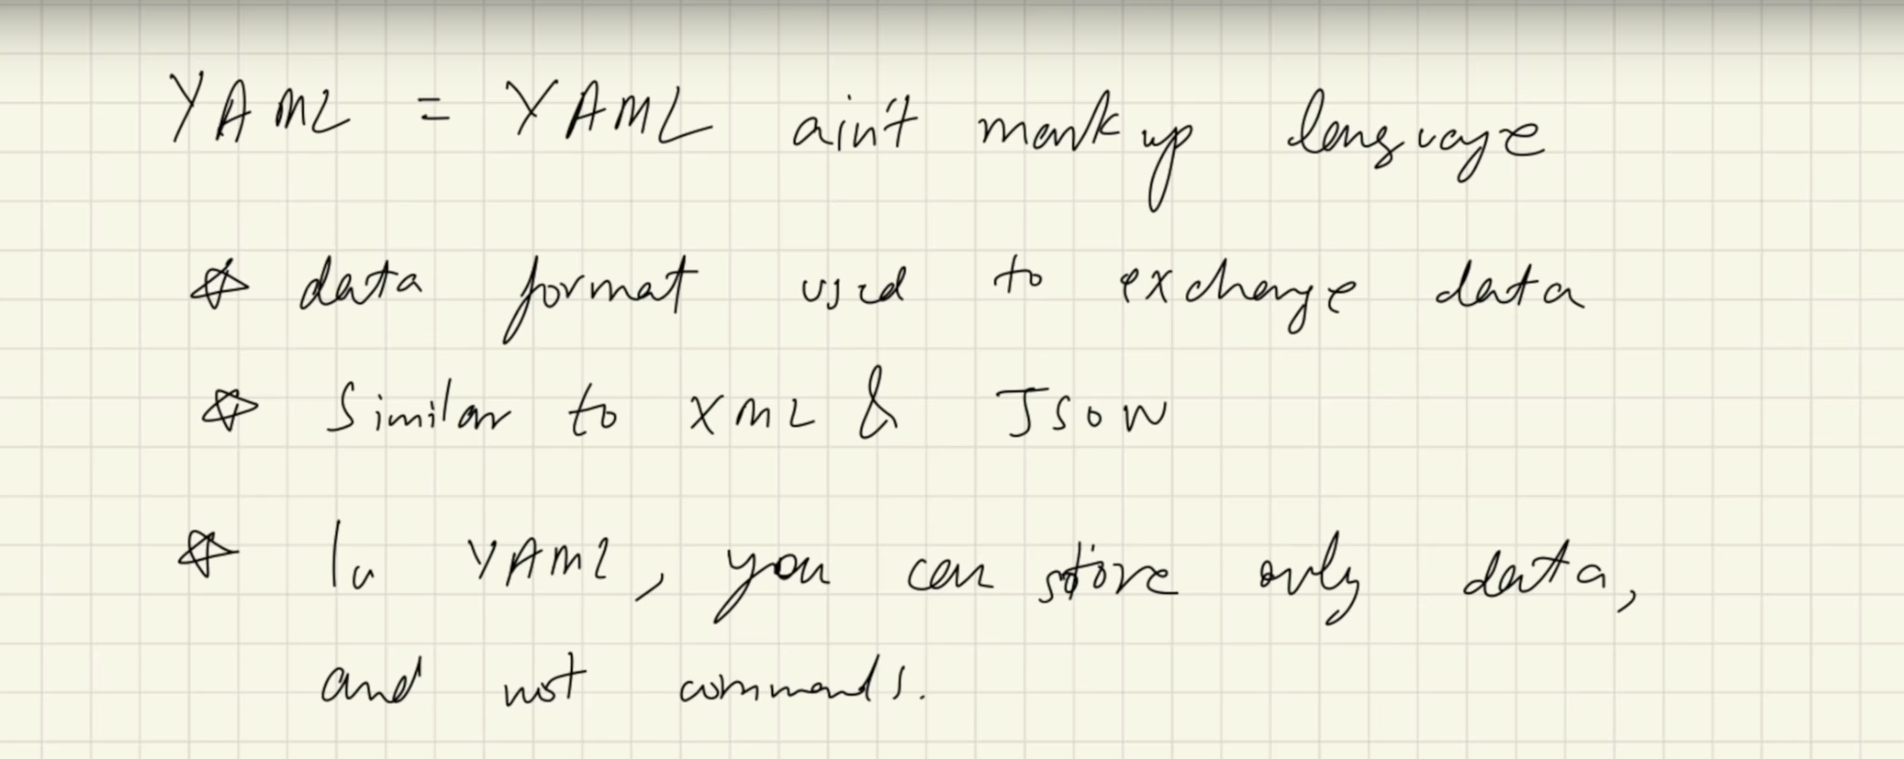 YAML = YAML ain't markup language
☆ data format used to exchange data
☆ Similar to XML & Json
☆ In YAML, you can store only data,
and not commands.